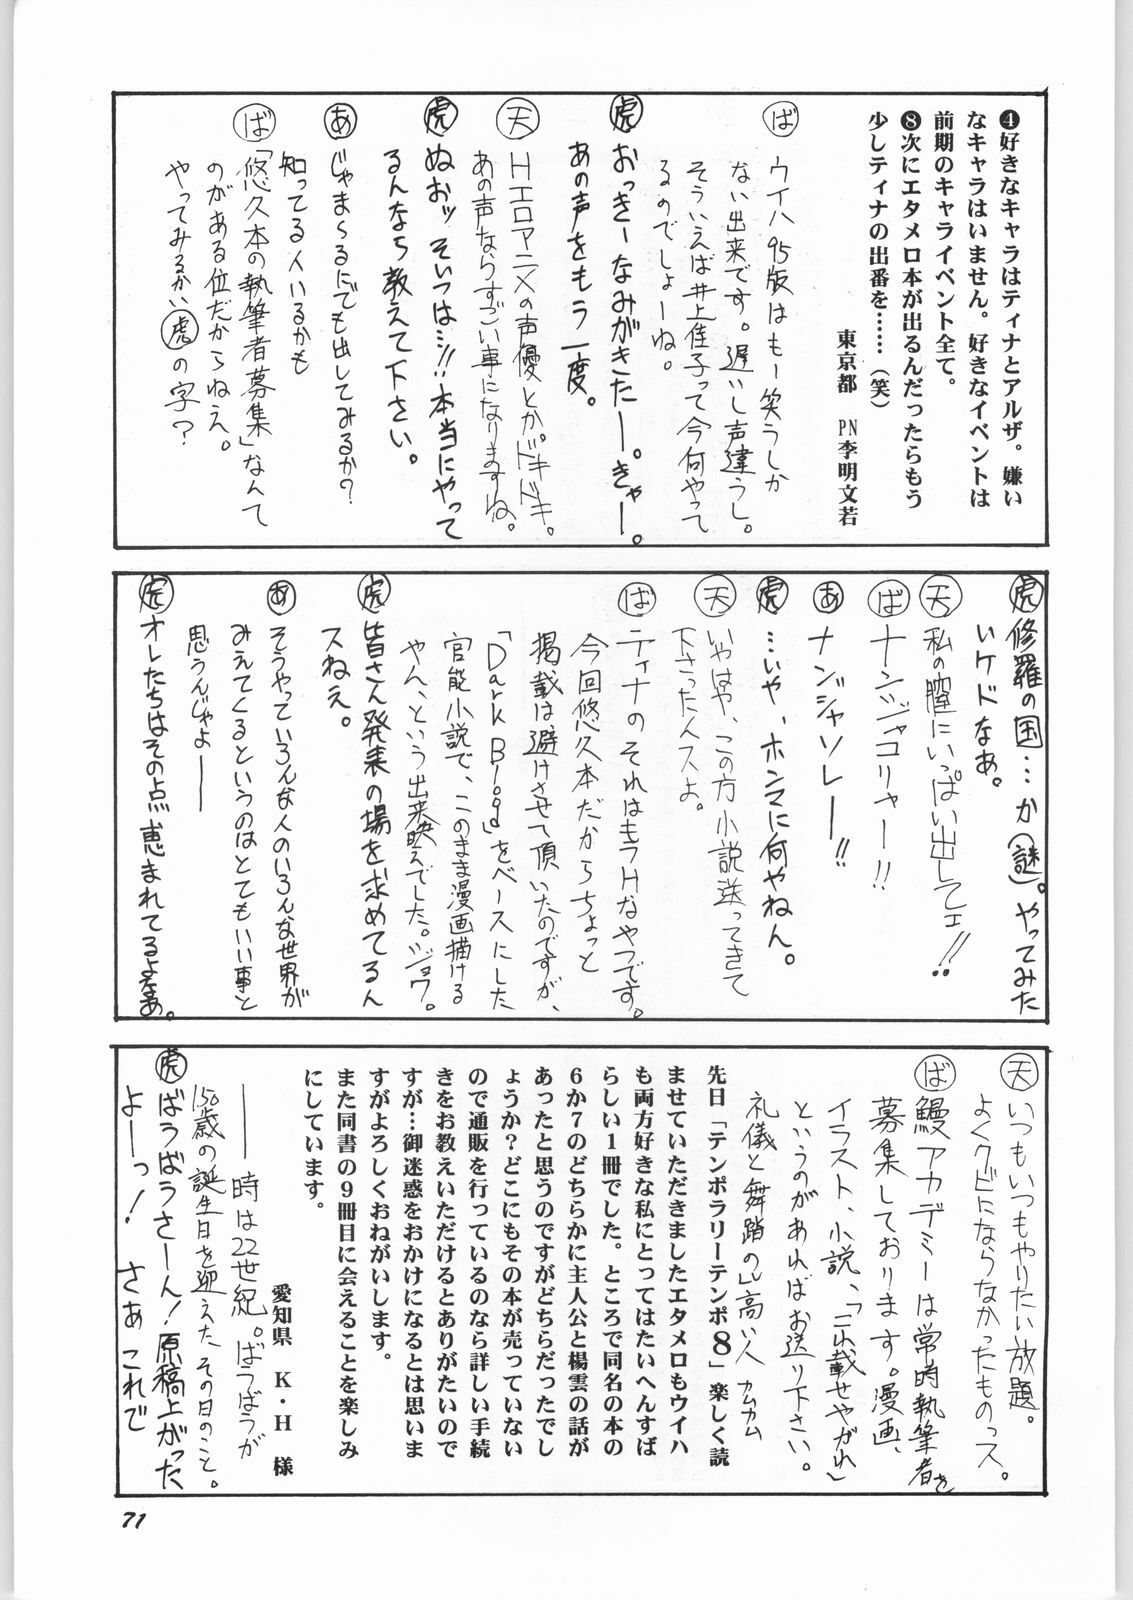 ❹好きなキャラはティナとアルザ。嫌い
なキャラはいません。好きなイベントは
前期のキャライベント全て。
❽次にエタメロ本が出るんだったらもう
少しティナの出番を……（笑）
東京都　PN李明文若
ば ウイハ95版はもー笑うしか
ない出来です。遅いし声違うし。
そういえば井上佳子って今何やって
るのでしょーね。
虎 おっきーなみがきたー。きゃー。
あの声をもう一度。
天 Hエロアニメの声優とか。ドキドキ。
あの声ならすごい事になりますね。
虎 ぬおッ そいつは…!!本当にやって
るんなら教えて下さい。
あ じゃま〜るにでも出してみるか?
知ってる人いるかも
ば 「悠久本の執筆者募集」なんて
のがある位だからねえ。
やってみるかい虎の字?
虎 修羅の国…か（謎）。やってみた
いケドなあ。
天 私の膣にいっぱい出してェ!!
ば ナンジャコリャー!!
あ ナンジャソレー!!
虎 …いや、ホンマに何やねん。
天 いやはや、この方小説送ってきて
下さった人スよ。
ば ティナのそれはもうHなやつです。
今回悠久本だからちょっと
掲載は避けさせて頂いたのですが、
「Dark Blood」をベースにした
官能小説で、このまま漫画描ける
やん、という出来映えでした。ジョワ。
虎 皆さん発表の場を求めてるん
スねえ。
あ そうやっていろんな人のいろんな世界が
みえてくるというのはとてもいい事と
思うんじゃよ——
虎 オレたちはその点恵まれてるよなあ。
天 いつもいつもやりたい放題。
よくクビにならなかったものっス。
ば 鰻アカデミーは常時執筆者を
募集しております。漫画、
イラスト、小説、「これ載せやがれ」
というのがあればお送り下さい。
礼儀と舞踏の心高い人 カムカム
先日「テンポラリーテンポ8」楽しく読
ませていただきましたエタメロもウイハ
も両方好きな私にとってはたいへんすば
らしい1冊でした。ところで同名の本の
6か7のどちらかに主人公と楊雲の話が
あったと思うのですがどちらだったでし
ょうか?どこにもその本が売っていない
ので通販を行っているのなら詳しい手続
きをお教えいただけるとありがたいので
すが…御迷惑をおかけになるとは思いま
すがよろしくおねがいします。
また同書の9冊目に会えることを楽しみ
にしています。
愛知県　K・H　様
——時は22世紀。ばうばうが
150歳の誕生日を迎えたその日のこと。
虎 ばうばうさーん!原稿上がった
よーっ! さあ これで
71